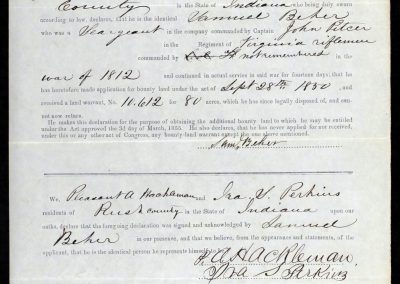 County in the State of Indiana who being duly sworn
according to law, declares that he is the identical Samuel Beher
who was a Seargeant in the company commanded by Captain John Pitcer
in the Regiment of Virginia riflemen
commanded by not remembered in the
war of 1812 and continued in actual service in said war for fourteen days; that he
has heretofore made application for bounty land under the act of Sept 28th 1850, and
received a land warrant, No. 10.612 for 80 acres, which he has since legally disposed of, and can-
not now return.
He makes this declaration for the purpose of obtaining the additional bounty land to which he may be entitled
under the Act approved the 3d day of March, 1855. He also declares, that he has never applied for nor received,
under this or any other act of Congress, any bounty land warrant except the one above mentioned.
Saml Beher
We, Pleasant A Hackleman and Ira S. Perkins
residents of Rush county in the State of Indiana upon our
oaths, declare that the foregoing declaration was signed and acknowledged by Samuel
Beher in our presence, and that we believe, from the appearance and statements, of the
applicant, that he is the identical person he represents himself to be
P. A. Hackleman,
Ira S Perkins